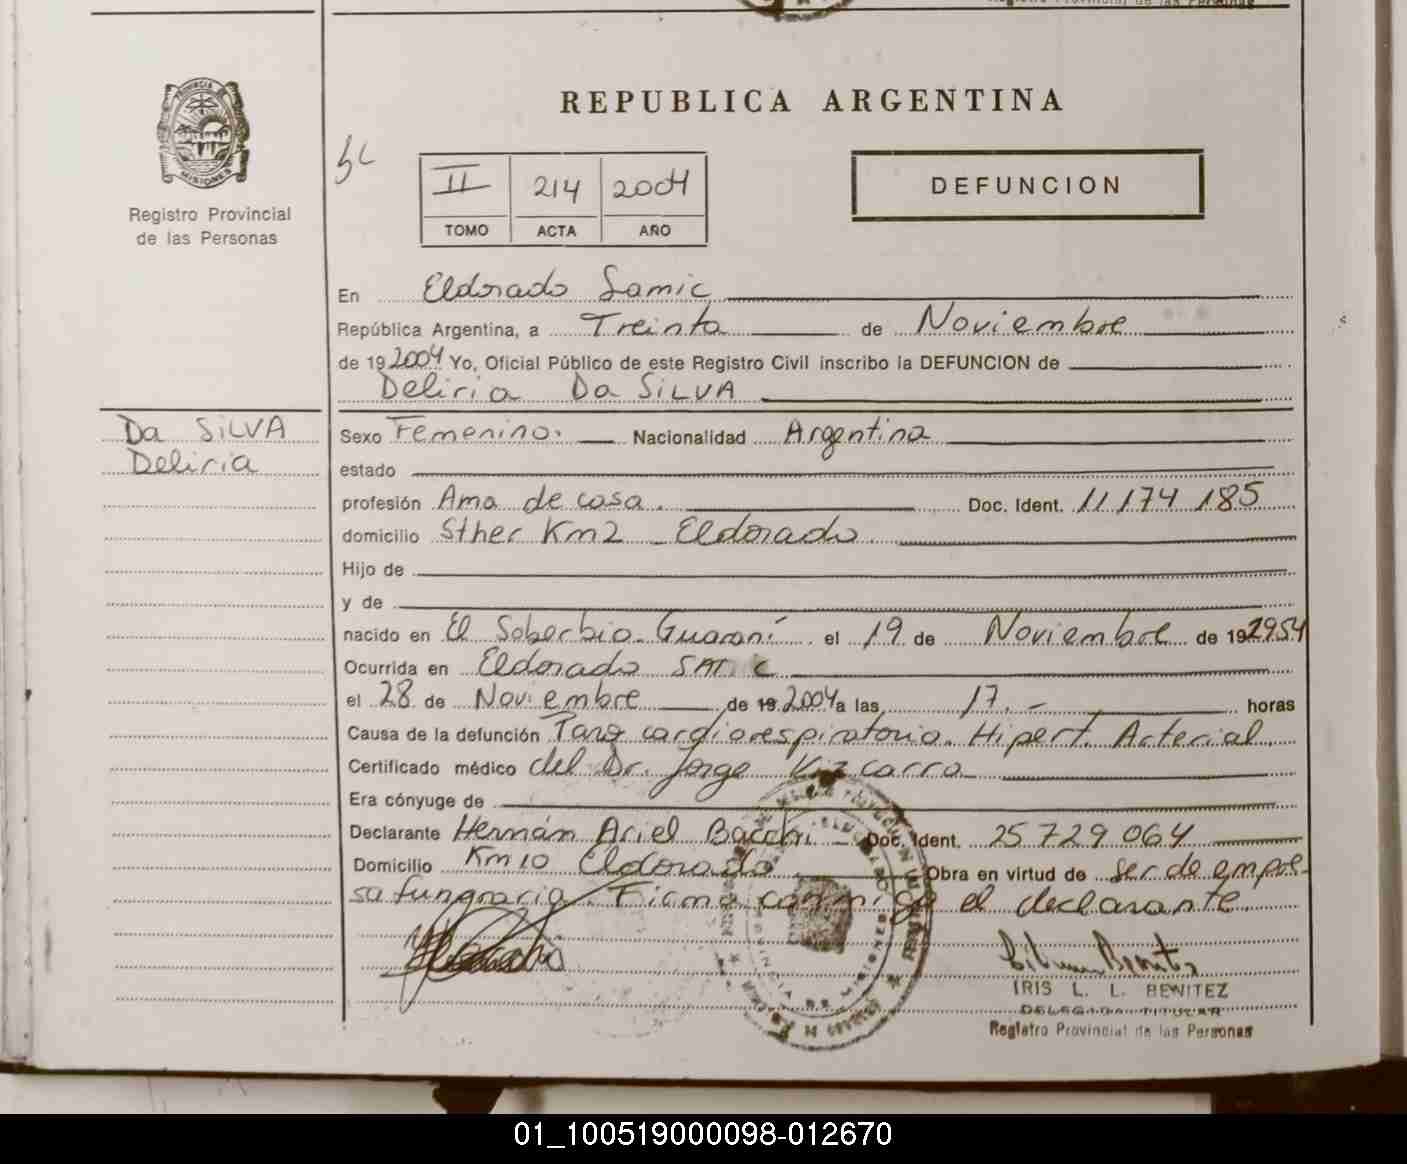 REPUBLICA ARGENTINA
PROVINCIA DE MISIONES
Registro Provincial
de las Personas
II 214 2004
TOMO ACTA AÑO
DEFUNCION
En Eldorado Samic
República Argentina, a Treinta de Noviembre
de 19 2004 Yo, Oficial Público de este Registro Civil inscribo la DEFUNCION de
Deliria Da SILVA
Da SILVA
Deliria
Sexo Femenino. Nacionalidad Argentina
estado
profesión Ama de casa. Doc. Ident. 11 174 185
domicilio Sther Km2 Eldorado
Hijo de
y de
nacido en El Soberbio Guaraní el 19 de Noviembre de 19 1954
Ocurrida en Eldorado SAMIC
el 28 de Noviembre de 19 2004 a las 17.- horas
Causa de la defunción Paro cardiorespiratorio. Hipert. Arterial.
Certificado médico del Dr. Jorge Vizcarra
Era cónyuge de
Declarante Hernán Ariel Bacchi Doc. Ident. 25 729 064
Domicilio Km 10 Eldorado Obra en virtud de ser de empre-
sa funeraria. Firma conmigo el declarante.
IRIS L. L. BENITEZ
DELEGADA TITULAR
Registro Provincial de las Personas
01_100519000098-012670